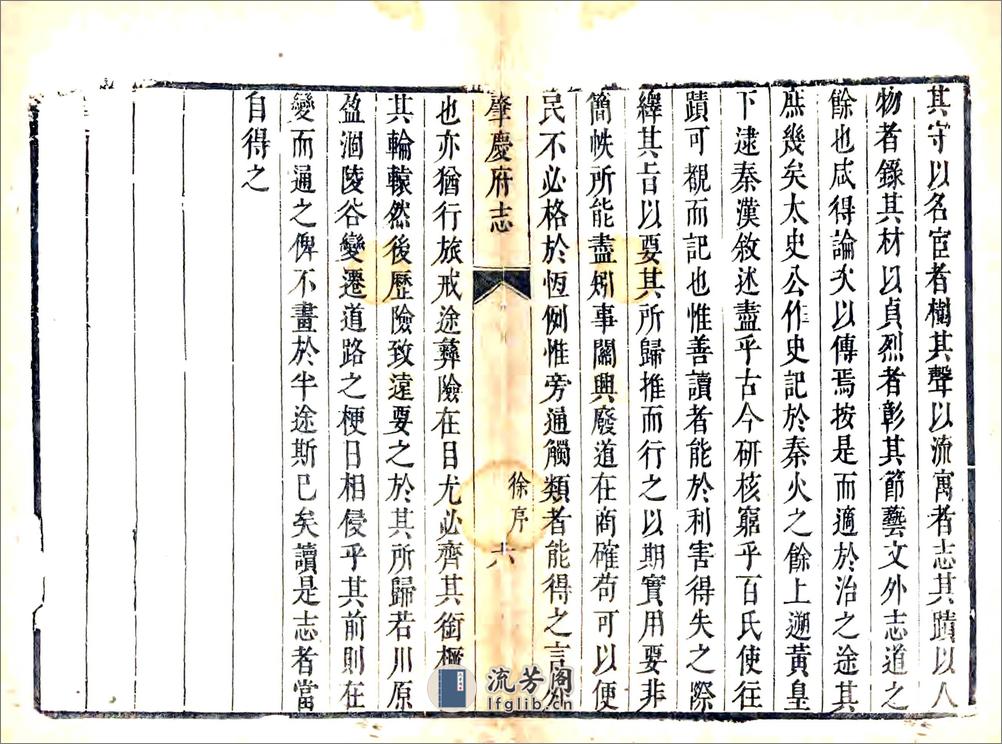 其守以名宦者樹其聲以流寓者志其蹟以人
物者錄其材以貞烈者彰其節藝文外志道之
餘也咸得論次以傳焉按是而適於治之途其
庶幾矣太史公作史記於秦火之餘上遡黃皇
下逮秦漢敘述盡乎古今研核窮乎百氏使往
蹟可覩而記也惟善讀者能於利害得失之際
繹其旨以要其所歸推而行之以期實用要非
簡帙所能盡矧事關興廢道在商確苟可以便
民不必格於恆例惟旁通觸類者能得之言外
肇慶府志
徐序
六
也亦猶行旅戒途彛險在目尤必齊其銜橛
其輪轅然後歷險致遠要之於其所歸若川原
盈涸陵谷變遷道路之梗日相侵乎其前則在
變而通之俾不畫於半途斯已矣讀是志者當
自得之
流芳閣
lfglib.cn